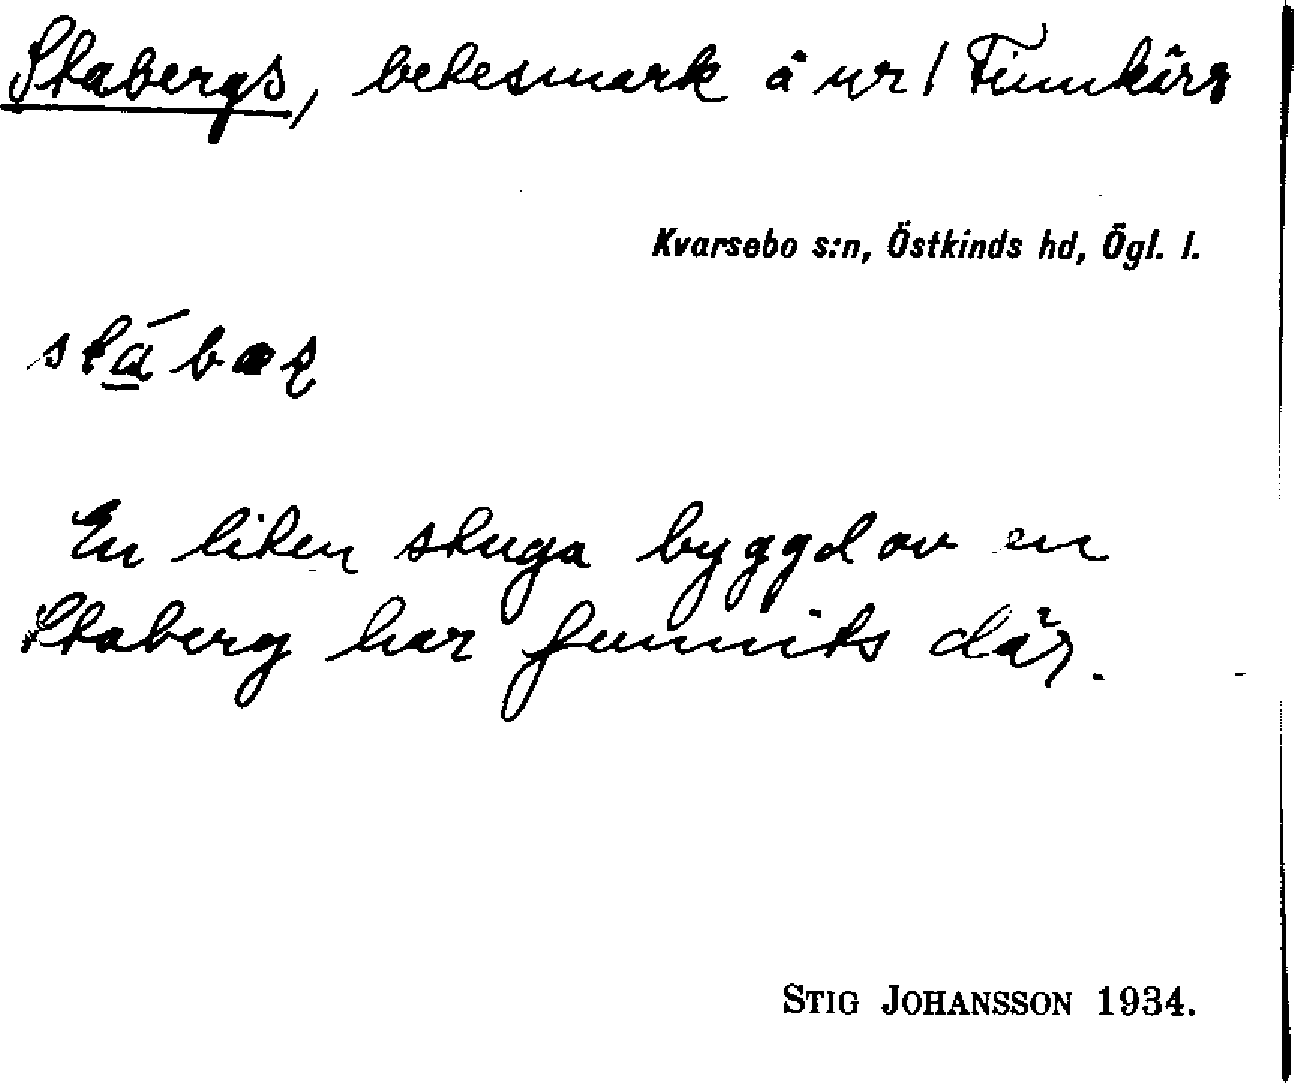 Stabergs, betesmark å nr 1 Finnkärr
Kvarsebo s:n, Östkinds hd, Ögl. l.
En liten stuga byggd av en
Staberg har funnits där.
STIG JOHANSSON 1934.